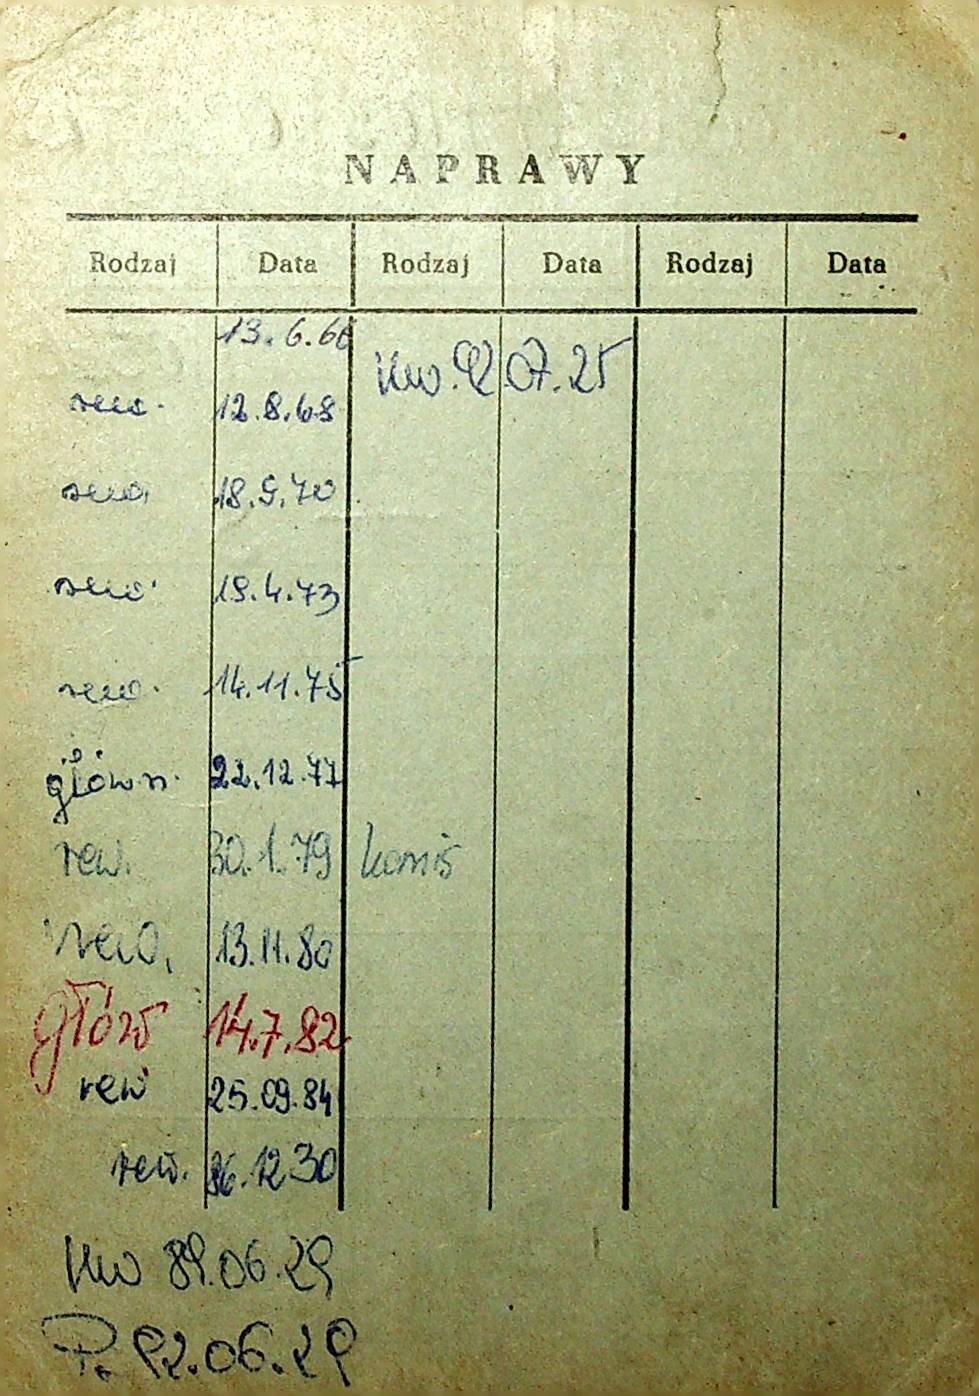 NAPRAWY
Rodzaj Data Rodzaj Data Rodzaj Data
13.6.66
rew. 12.8.68
rew. 18.9.70
rew. 19.4.73
rew. 14.11.75
główn. 22.12.77
rew. 30.1.79
rew. 13.11.80
głów 14.7.82
rew 25.09.84
rew. 86.12.30
89.06.29
P. 92.06.29
92.07.25